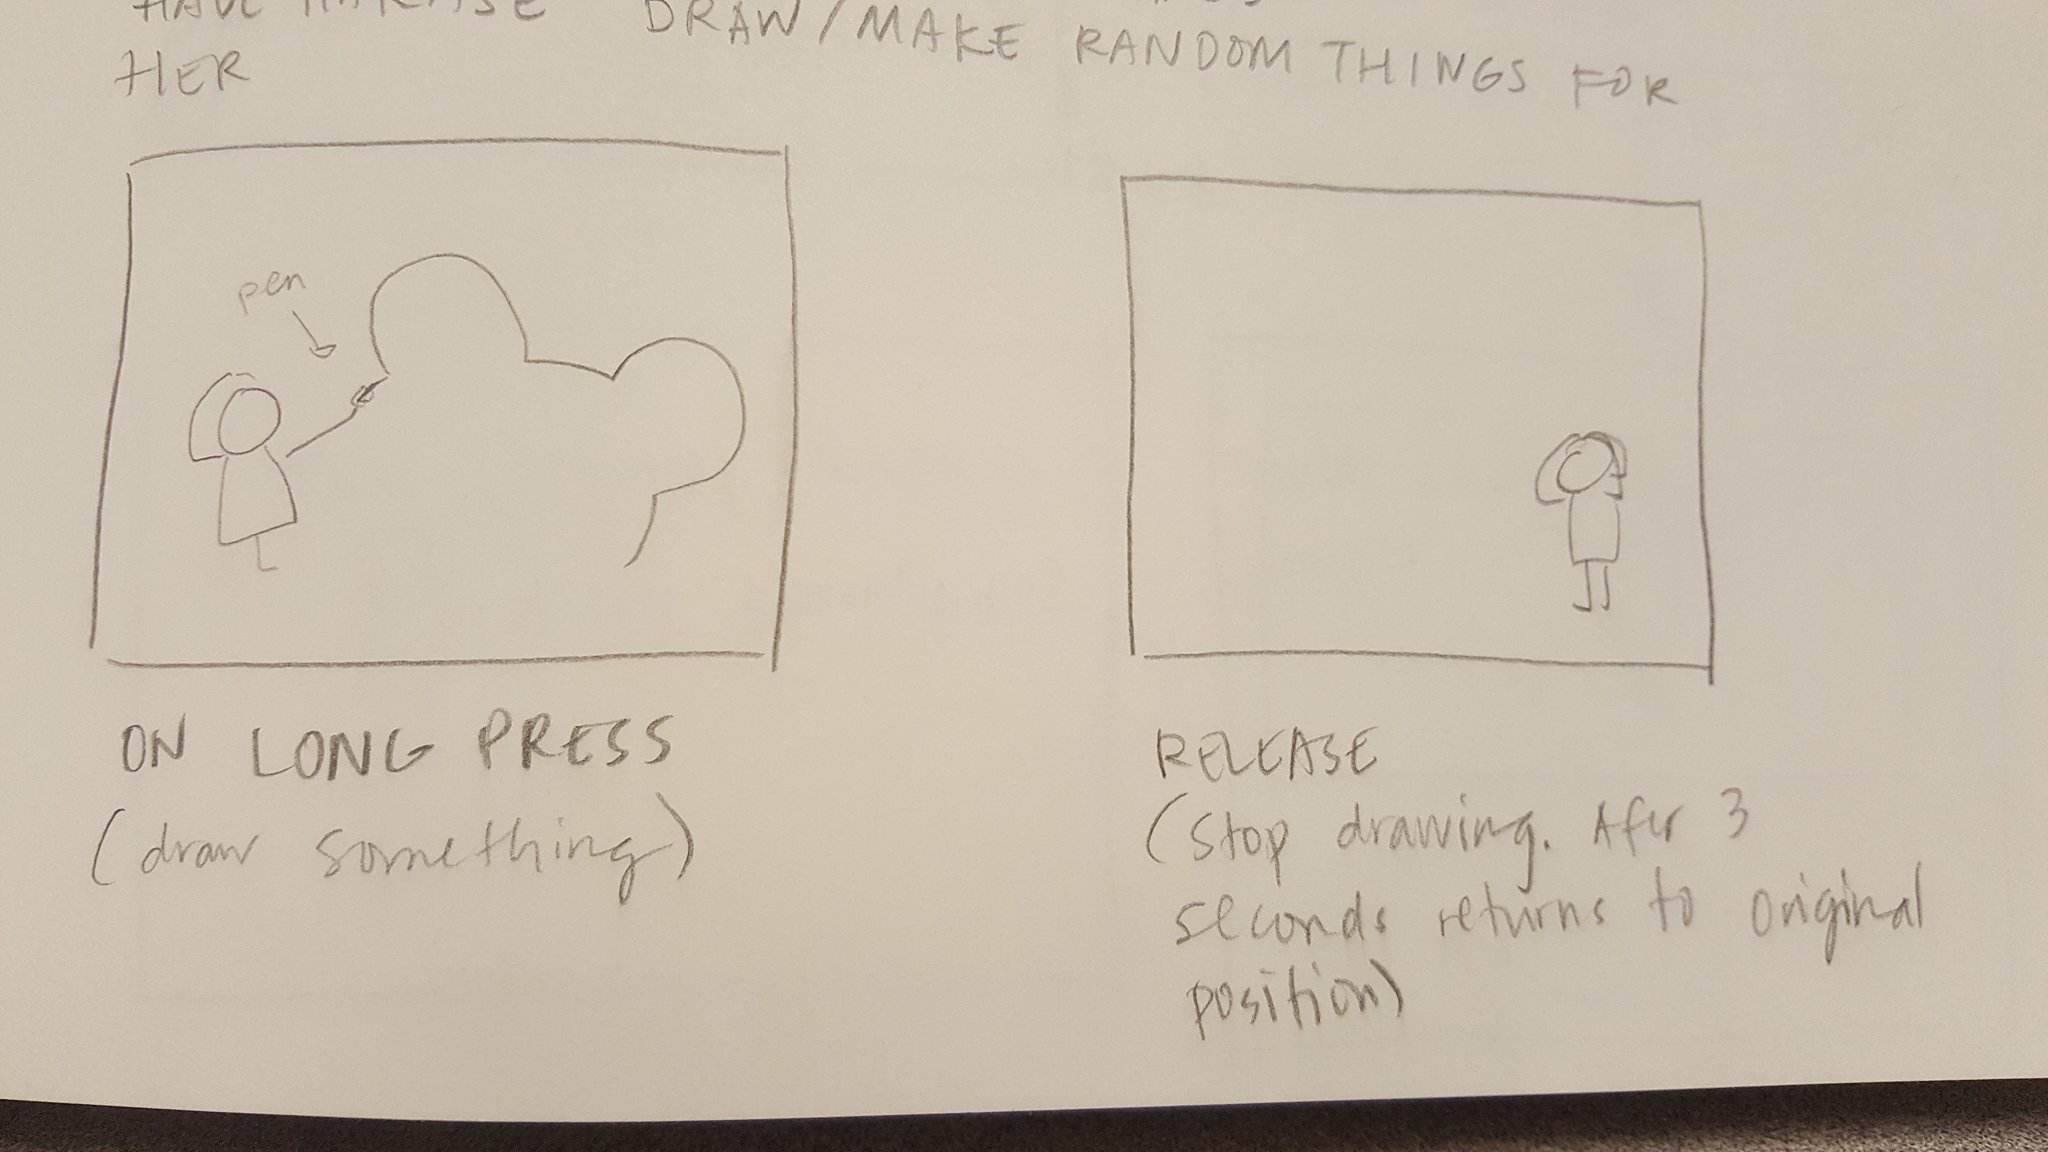 HAVE
DRAW/MAKE RANDOM THINGS FOR
HER
pen
ON LONG PRESS
(draw something)
RELEASE
(stop drawing. Afer 3
seconds returns to original
position)